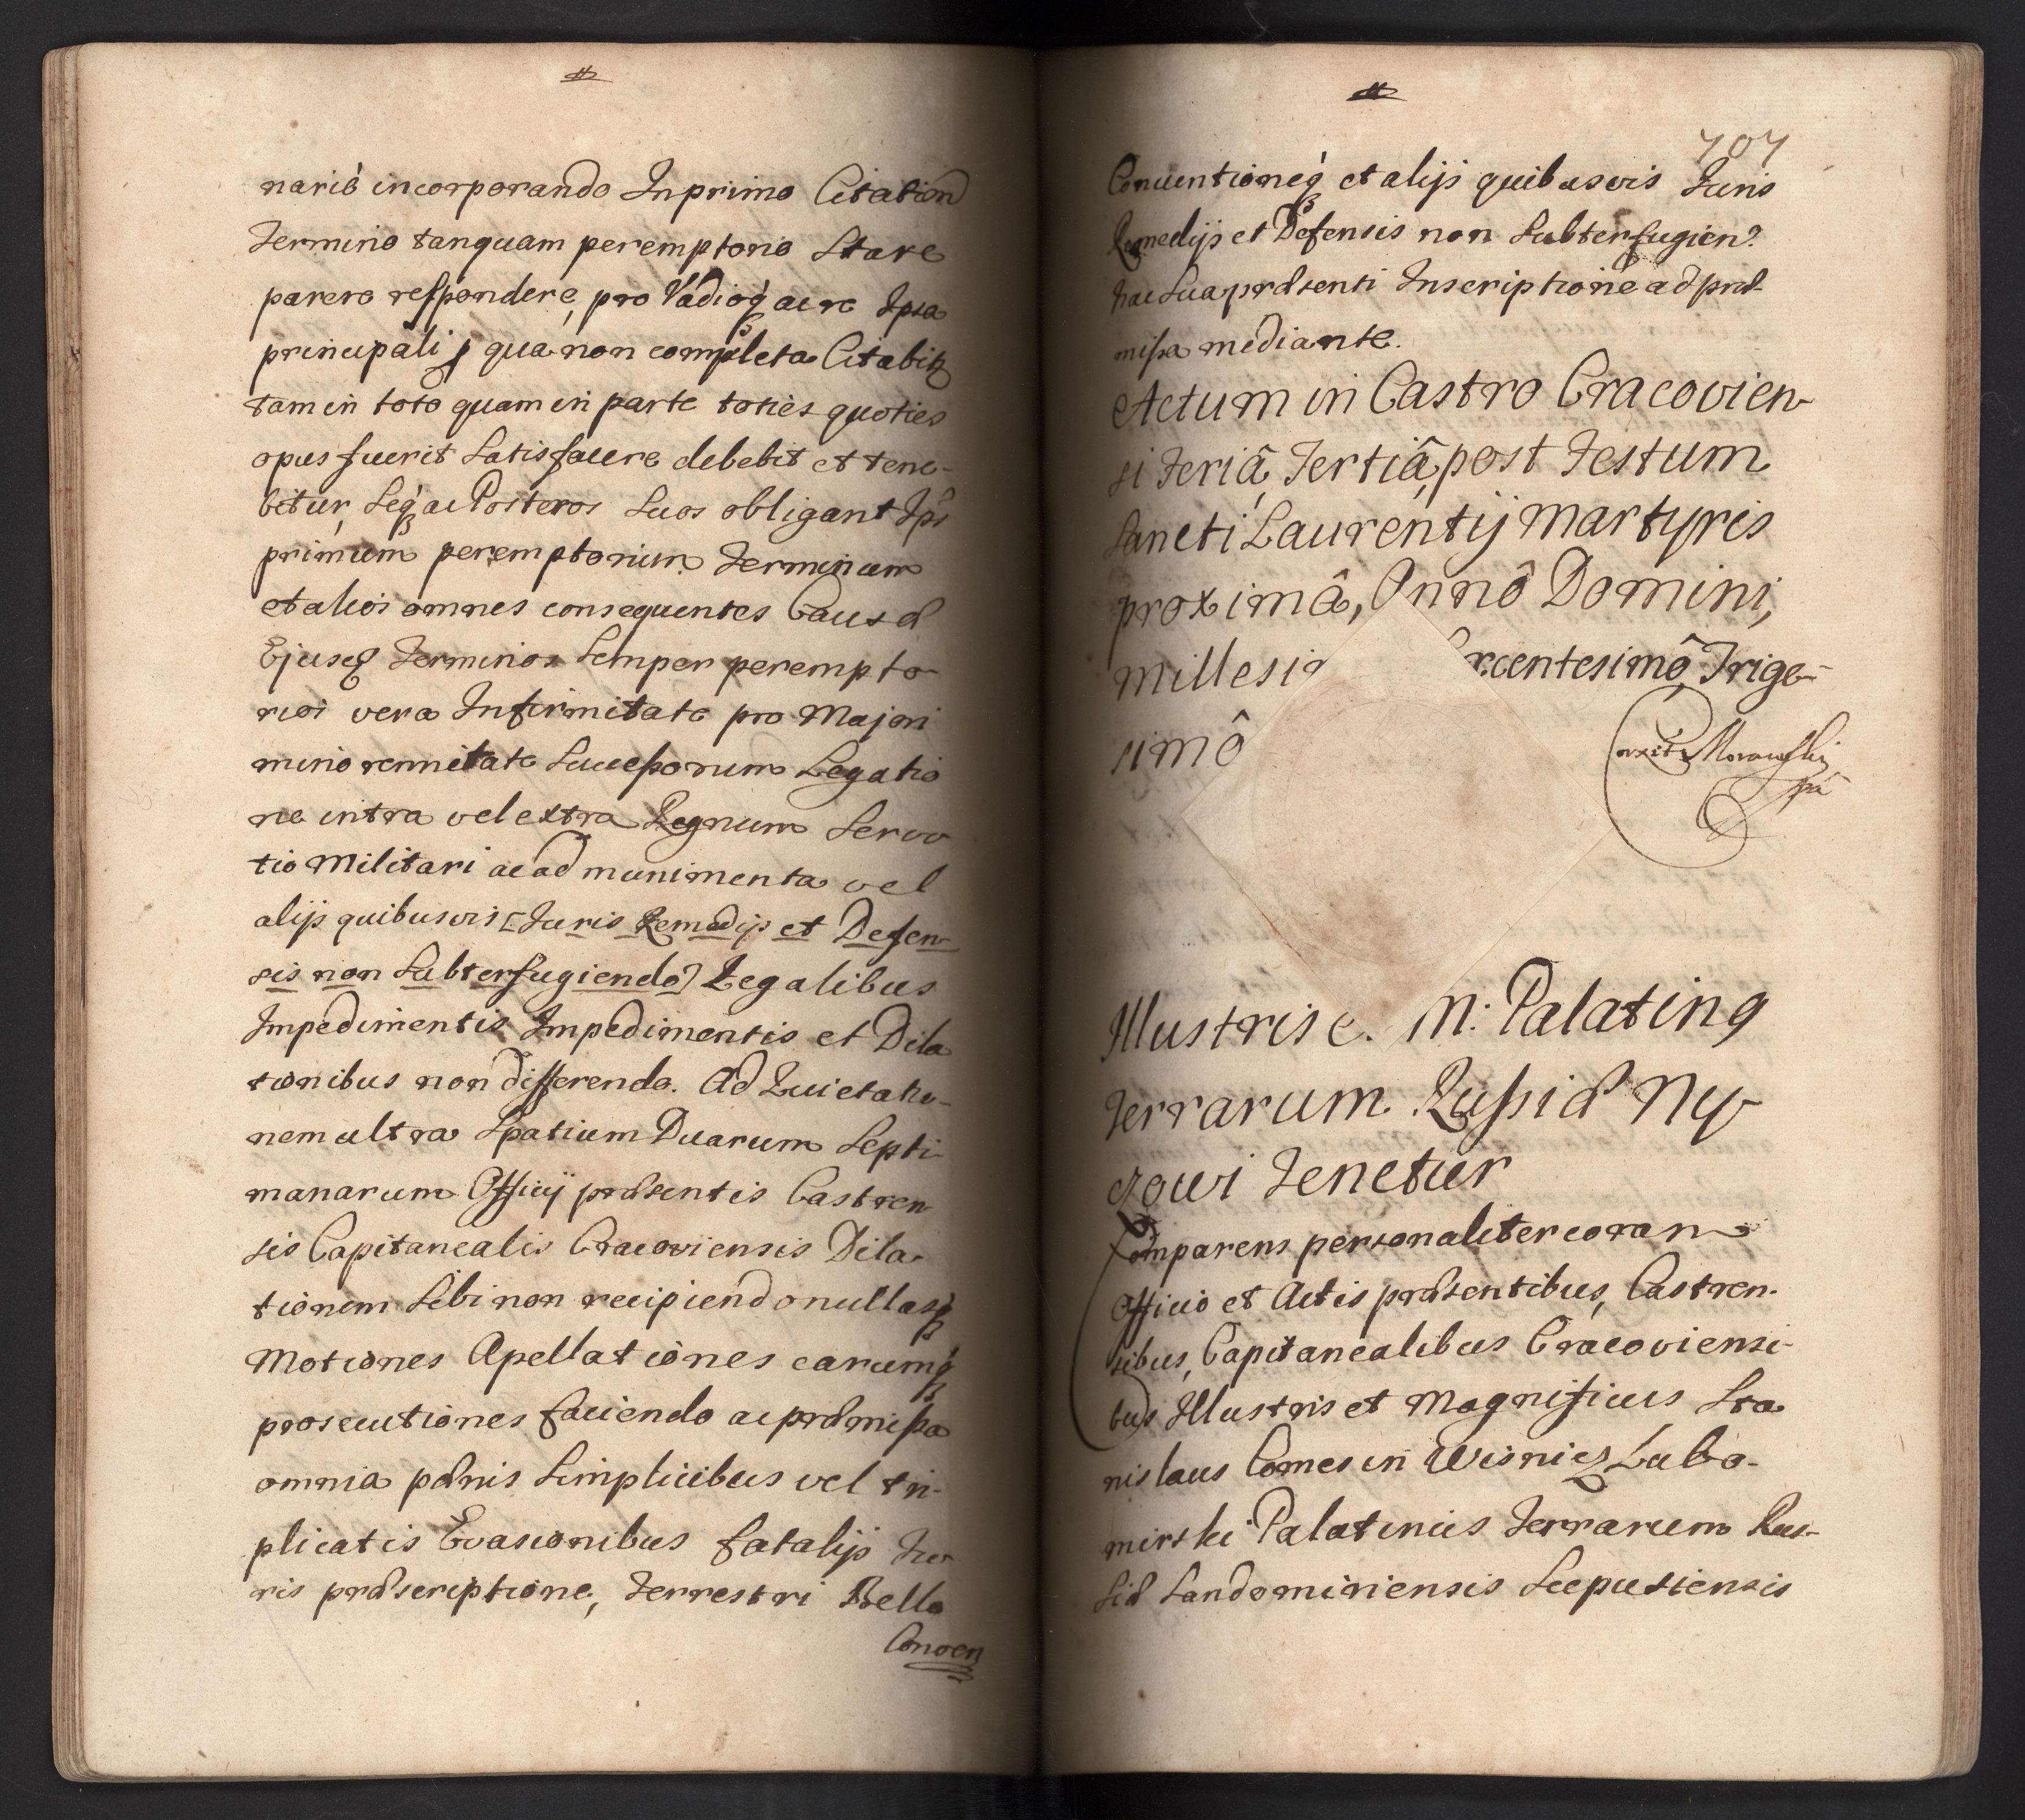 nariô incorporando Inprimo Citation
Termino tanquam peremptorio Stare
parere respondere, pro Vadioq́ ac re Ipsa
principali p qua non completa Citabit
tam in toto quam in parte toties quoties
opus fuerit Satisfacere debebit et tene-
bitur, Seq́ ac Posteros Suos obligant Ipsi
primum peremptorium Terminum
et alios omnes consequentes Causæ
Ejusq Terminos Semper perempto
rios vera Infirmitate pro Majori
minorennitate Successorum Legatio
ne intra vel extra Regnum Servi
tio Militari ac ad munimenta vel
alijs quibusvis [Juris Remedijs et Defen-
sis non Subterfugiendo] Legalibus
Impedimentis Impedimentis et Dila
tionibus non differendo. Ad Quietatio-
nem ultra Spatium Duarum Septi-
manarum Officij præsentis Castren
sis Capitanealis Cracoviensis Dila-
tionem Sibi non recipiendo nullasq́
Motiones Apellationes earumq́
prosecutiones faciendo ac præmissa
omnia pænis Simplicibus vel tri-
plicatis Evasionibus fatalijs Ju
ris præscriptione, Terrestri Bello
Conven
707
Conventioneq́ et alijs quibusvis Juris
Remedijs et Defensis non Subterfugien?
hac Sua præsenti Inscriptione ad præ-
missa mediante.
Actum in Castro Cracovien-
si Feriâ Tertiâ, post Festum
Sancti Laurentij Martyris
proximâ, Annô Domini,
Millesi centesimô, Trige-
simô
Illustris M: Palatinq
Terrarum Russiæ Ny-
czowi Tenetur
Comparens personaliter coram
Officio et Actis præsentibus, Castren-
sibus, Capitanealibus Cracoviensi-
bus Illustris et Magnificus Sta
nislaus Comes in Wisnicz Lubo-
mirski Palatinus Terrarum Rus-
siæ Sandomiriensis Scepusiensis